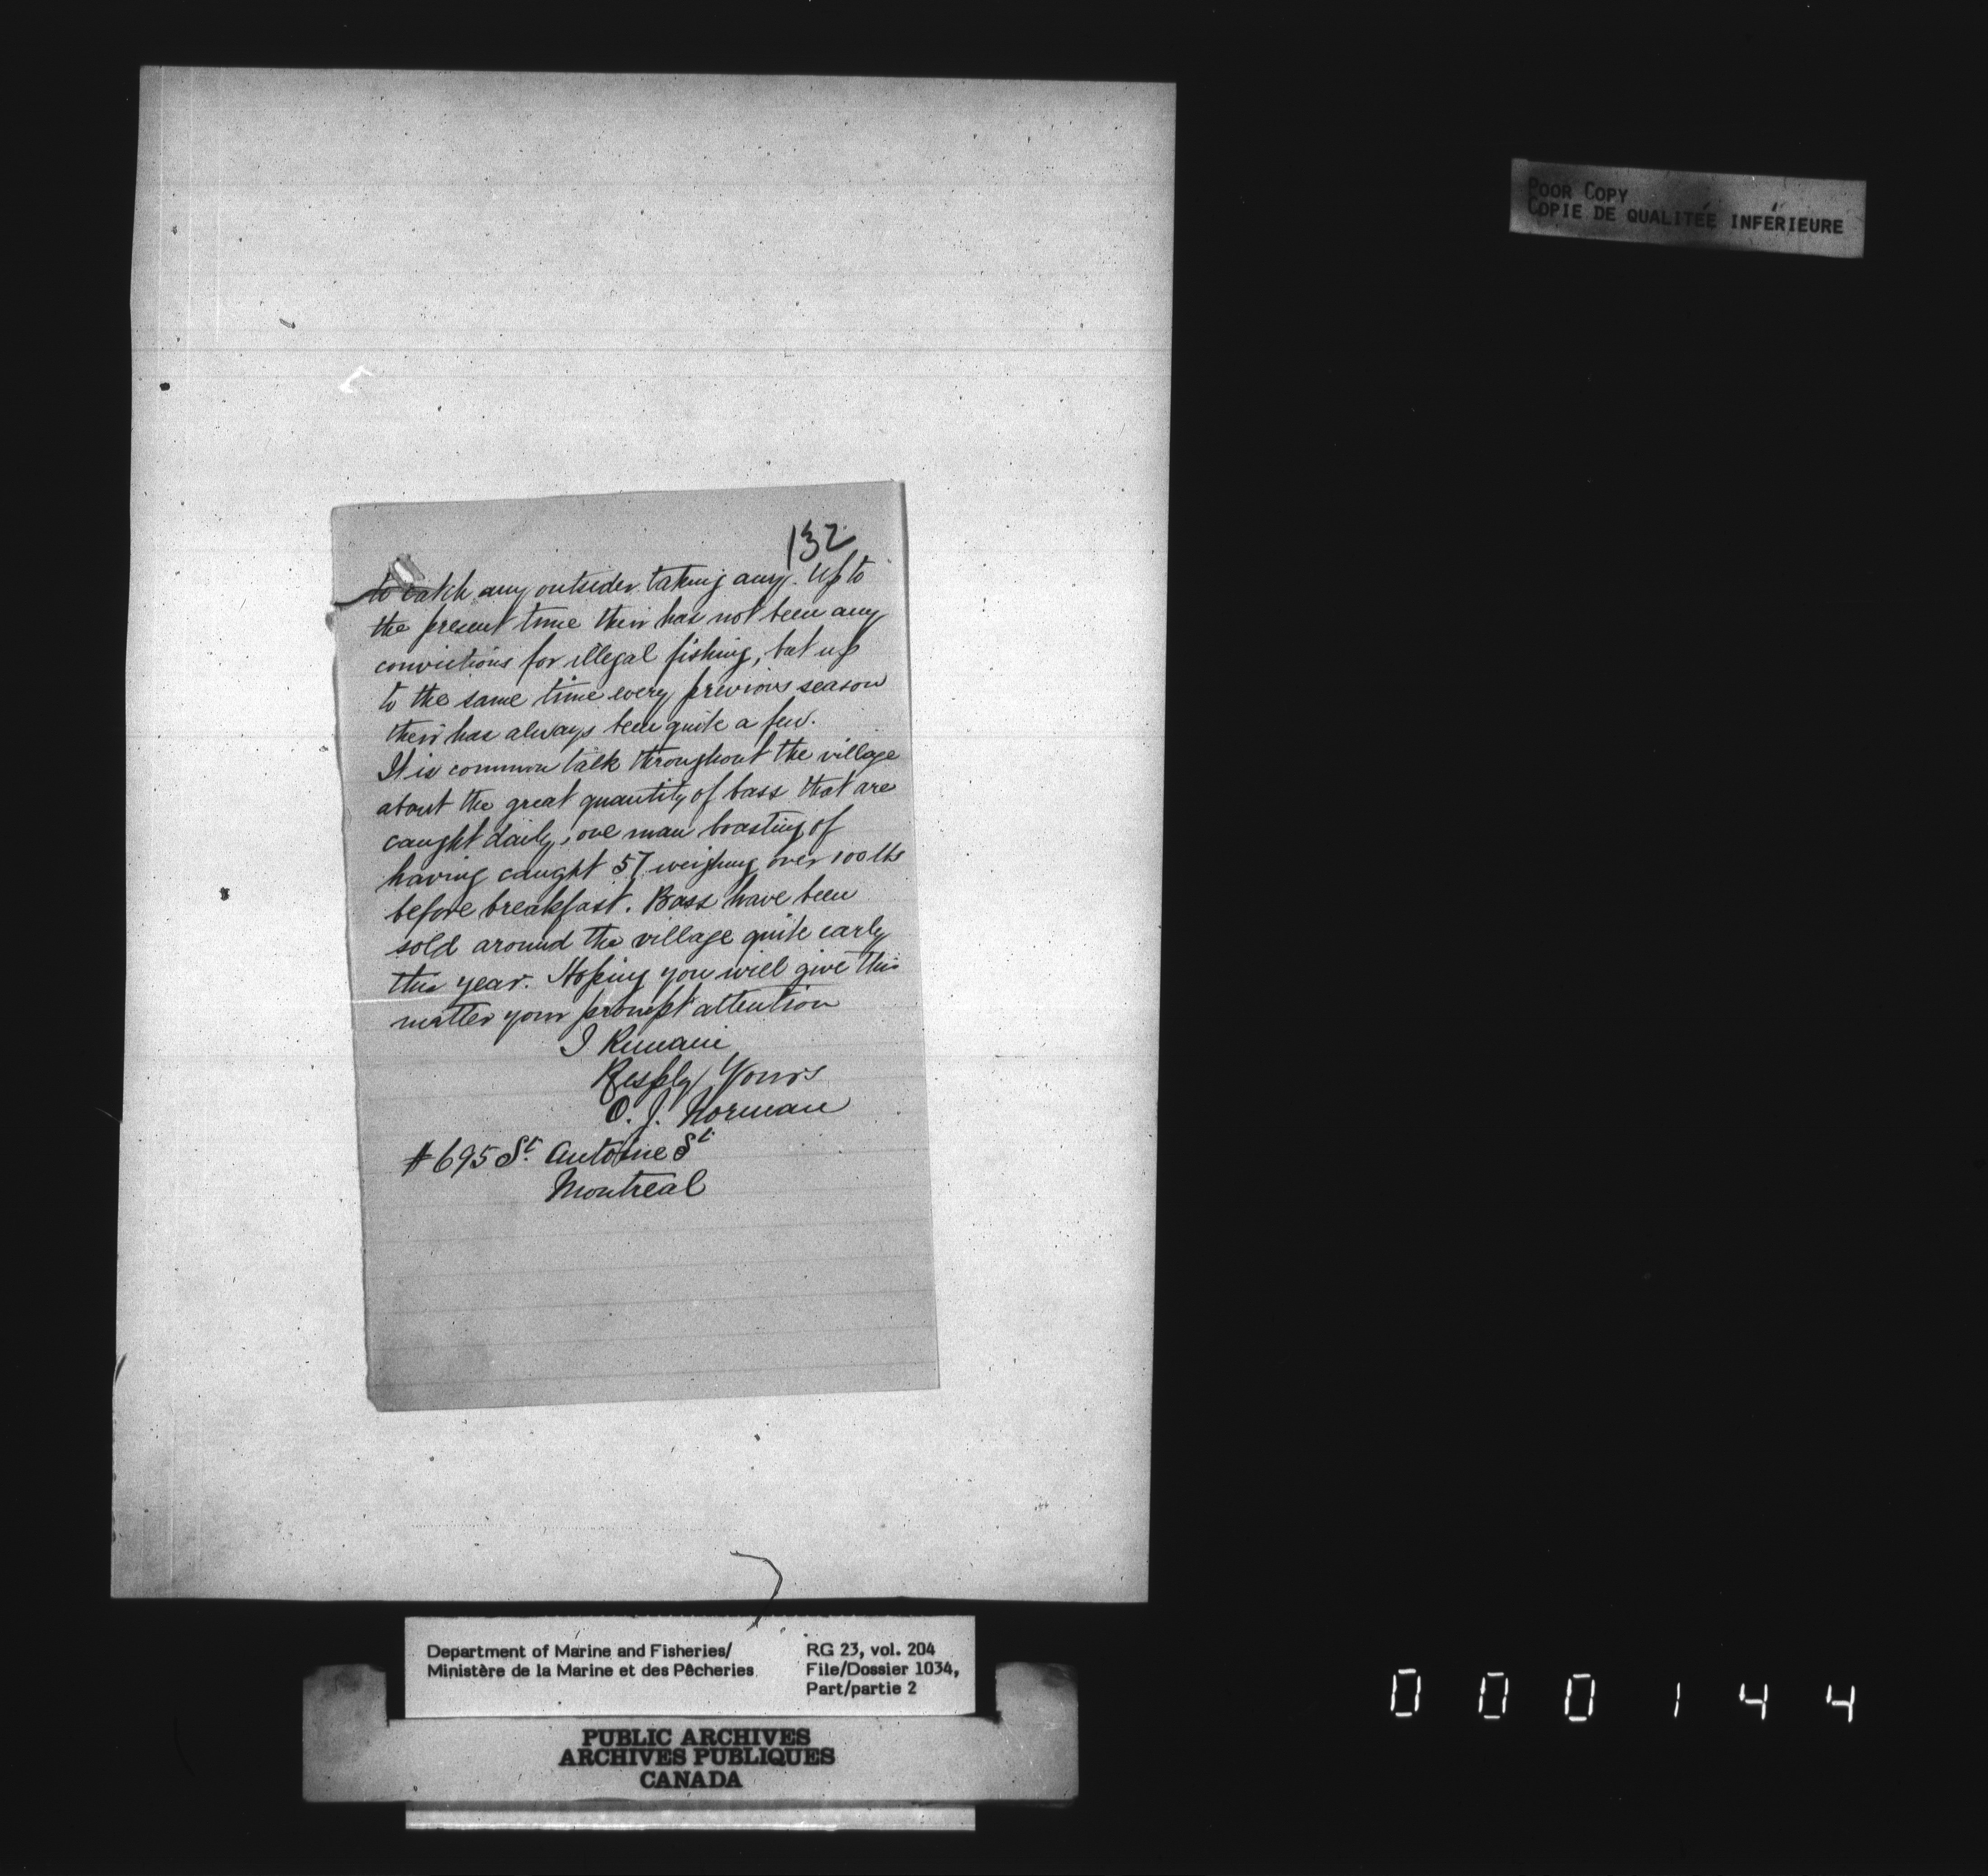 POOR COPY
COPIE DE QUALITÉE INFÉRIEURE
132
to catch any outsider taking any. Up to
the present time their has not been any
convictions for illegal fishing, but up
to the same time every previous season
their has always been quite a few.
It is common talk throughout the village
about the great quantity of bass that are
caught daily, one man boasting of
having caught 57 weighing over 100 lbs
before breakfast. Bass have been
sold around the village quite early
this year. Hoping you will give this
matter your prompt attention
I Remain
Resply Yours
O. J. Norman
#695 St. Antoine St
Montreal
Department of Marine and Fisheries/
Ministère de la Marine et des Pêcheries
RG 23, vol. 204
File/Dossier 1034,
Part/partie 2
PUBLIC ARCHIVES
ARCHIVES PUBLIQUES
CANADA
000144